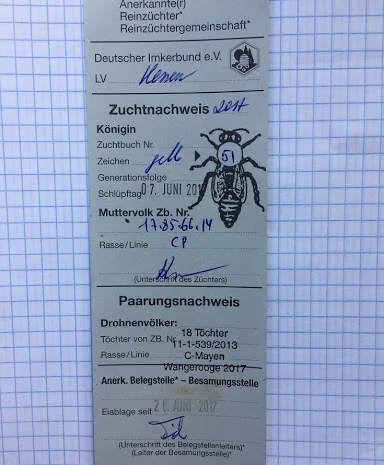 Anerkannte(r)
Reinzüchter*
Reinzüchtergemeinschaft*
Deutscher Imkerbund e.V.
LV Hessen
Zuchtnachweis 2017
Königin
Zuchtbuch Nr.
Zeichen gelb 51
Generationsfolge
Schlüpftag 07. JUNI 201
Muttervolk Zb. Nr.
17.85.66.14
Rasse/Linie CP
(Unterschrift des Züchters)
Paarungsnachweis
Drohnenvölker:
18 Töchter
Töchter von ZB. Nr. 11-1-539/2013
Rasse/Linie C-Mayen
Wangerooge 2017
Anerk. Belegstelle* – Besamungsstelle
Eiablage seit 2 JUNI 2017
(Unterschrift des Belegstellenleiters)*
(Leiter der Besamungsstelle)*